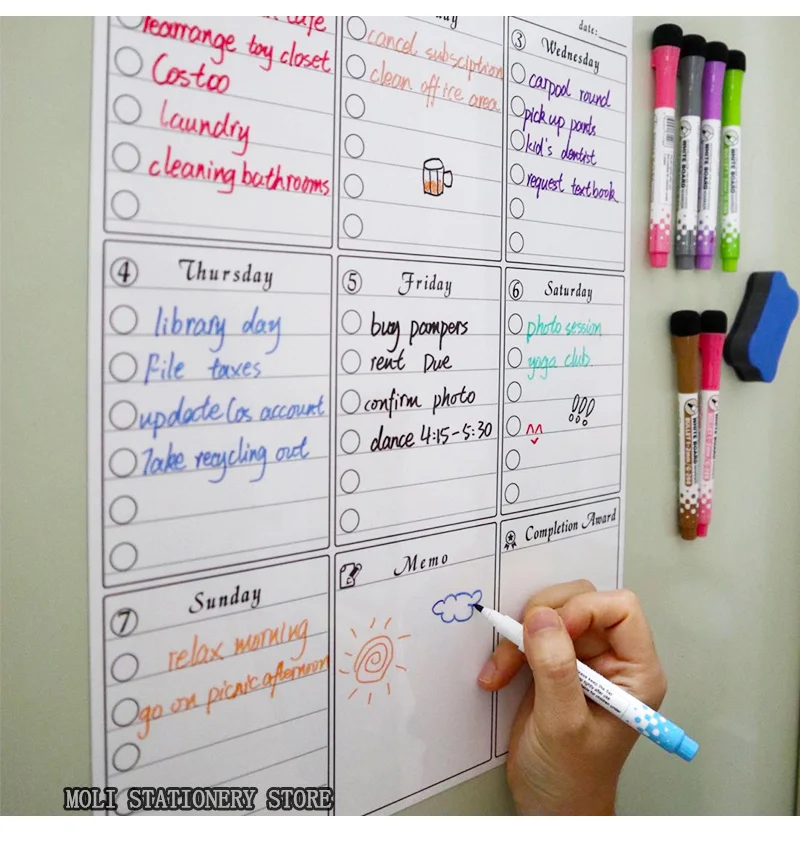 date:
rearrange toy closet
Costco
laundry
cleaning bathrooms
cancel subsciption
clean office area
3 Wednesday
carpool round
pick up pants
kid's dentist
request textbook
4 Thursday
library day
File taxes
update Cos account
Take recycling out
5 Friday
buy pampers
rent Due
confirm photo
dance 4:15-5:30
6 Saturday
photo session
yoga club
!!!
7 Sunday
relax morning
go on picnic afternoon
Memo
Completion Award
WHITE BOARD
WHITE BOARD
WHITE BOARD
WHITE BOARD
MOLI STATIONERY STORE